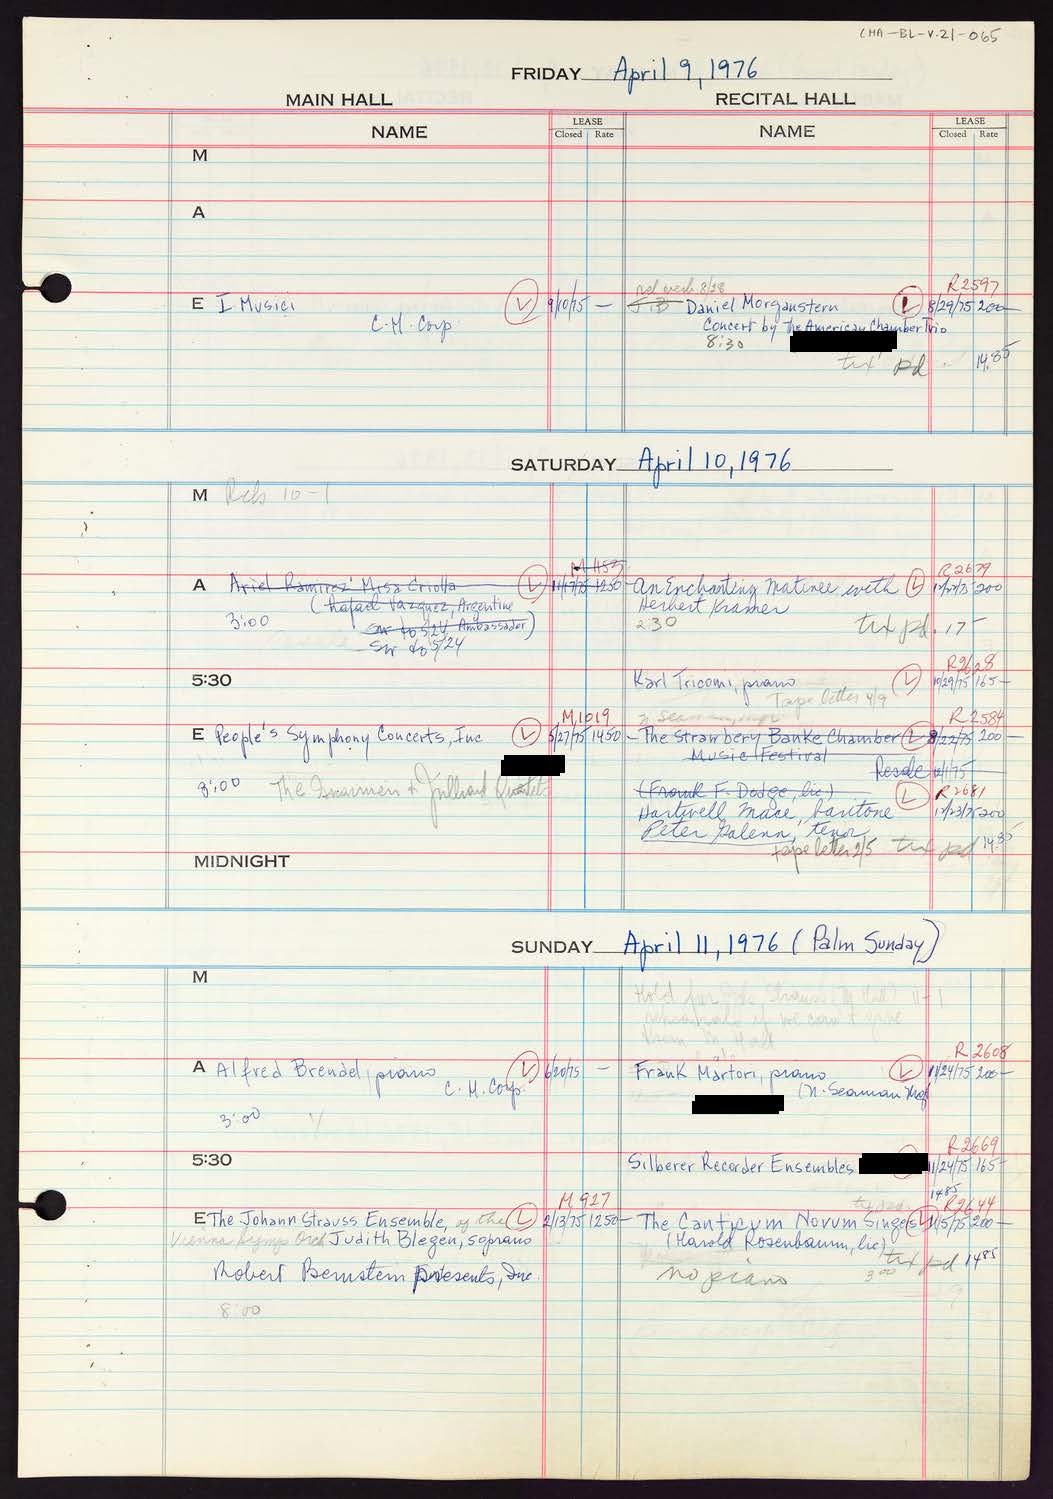 CHA-BL-V.21-065
FRIDAY April 9, 1976
MAIN HALL RECITAL HALL
NAME LEASE Closed Rate NAME LEASE Closed Rate
M
A
R2597
E I Musici 9/10/75 — Daniel Morganstern L 8/29/75 200—
C.M. Corp Concert by The American Chamber Trio
8:30
tax pd. 14.85
SATURDAY April 10, 1976
M Rehs 10-1
R2679
A Ariel Ramirez' Misa Criolla L 11/17/75 1250 An Enchanting Matinee with L 200
(Rafael Vazquez, Argentine Herbert Kramer
3:00 Ambassador) 2:30 tax pd. 17—
Sw to 5/24
R2628
5:30 Karl Tricomi, piano L 10/29/75 165—
Tape letter 4/9
M1019 R2584
E People's Symphony Concerts, Inc L 5/27/75 1450— The Strawbery Banke Chamber L 8/22/75 200—
Music Festival
8:00 The + Juilliard Quartet Resale
(Frank F. Dodge, lic) L R2681
Hartwell Mace, baritone 12/23/75 200
Peter Galenn, tenor
tape letter 2/5 tax pd 14.85
MIDNIGHT
SUNDAY April 11, 1976 (Palm Sunday)
M Hold for Strauss (M Hall) 11-1
R2608
A Alfred Brendel, piano L 6/20/75 — Frank Martori, piano L 11/24/75 200—
C.M. Corp. (N. Seaman Mgt
3:00
R2669
5:30 Silberer Recorder Ensembles 11/24/75 165—
14.85
M 927 R2644
E The Johann Strauss Ensemble, of the L 2/13/75 1250— The Canticum Novum Singers L 11/5/75 200—
Vienna Symp. Orch Judith Blegen, soprano (Harold Rosenbaum, lic) tax pd 14.85
Robert Bernstein Presents, Inc. no piano 3:00
8:00